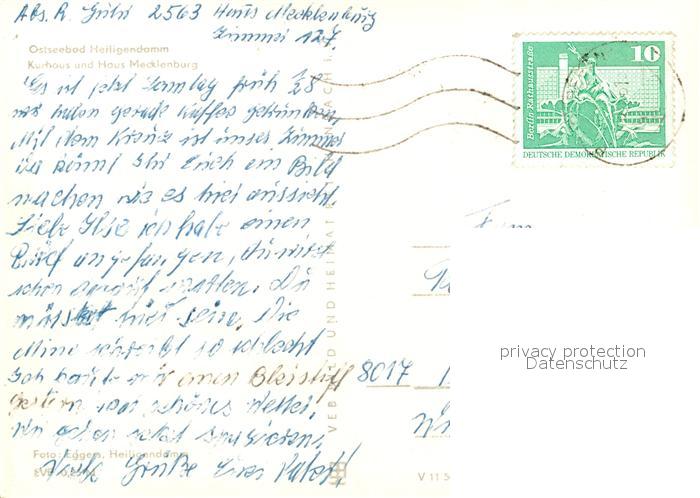 Abs. R. 2563 Haus Mecklenburg
Zimmer 127
Ostseebad Heiligendamm
Kurhaus und Haus Mecklenburg
Es ist jetzt Sonntag früh 1/28
wir haben gerade Kaffee getrunken.
Mit dem Kreuz ist unser Zimmer
da könnt Ihr Euch ein Bild
machen wie es hier aussieht.
Liebe Ilse ich habe einen
Brief angefangen, du wirst
schon darauf warten. Du
müsstest hier sein. Die
Mine schreibt so schlecht
Ich einen Bleistift
Gestern war schönes Wetter.
Wir gehen jetzt spazieren.
Viele Grüße
Foto: Eggers, Heiligendamm
VEB BILD UND HEIMAT
10
Berlin Rathausstraße
DEUTSCHE DEMOKRATISCHE REPUBLIK
8017
V 11 5
privacy protection
Datenschutz